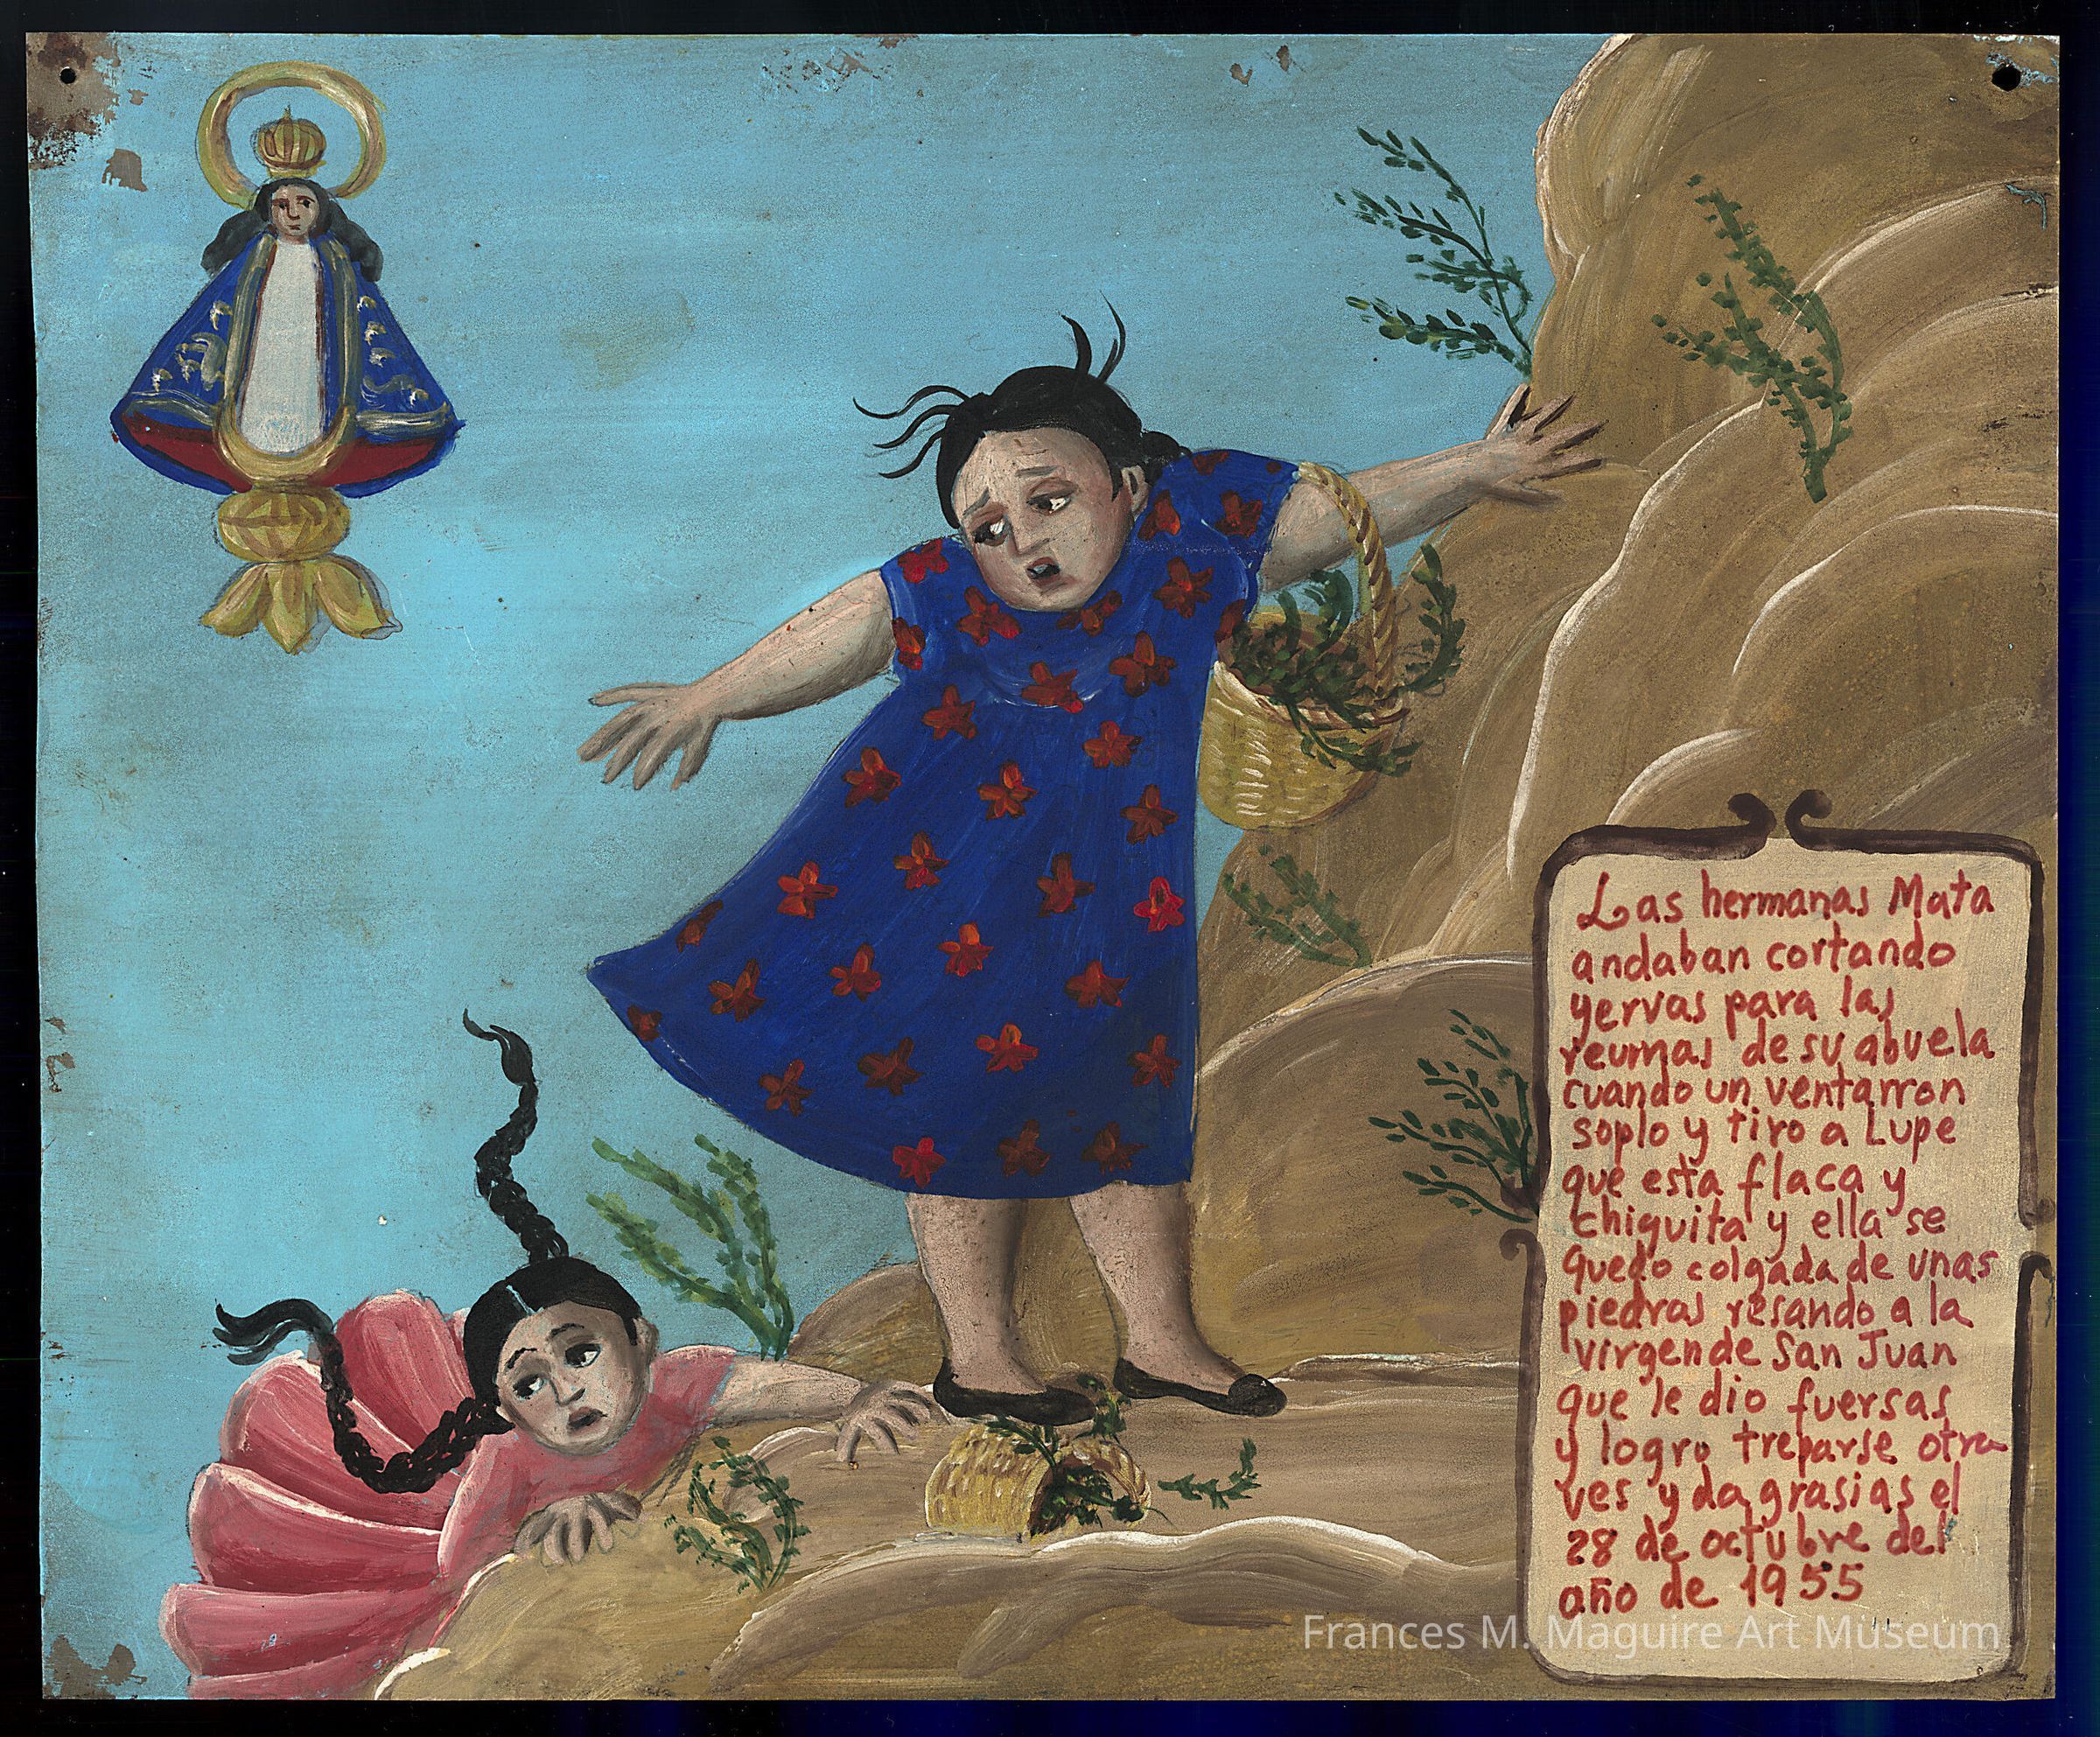 Las hermanas Mata
andaban cortando
yervas para las
reumas de su abuela
cuando un ventarron
soplo y tiro a Lupe
que esta flaca y
chiquita y ella se
quedo colgada de unas
piedras resando a la
virgen de San Juan
que le dio fuersas
y logro treparse otra
ves y da grasias el
28 de octubre del
año de 1955
Frances M. Maguire Art Museum